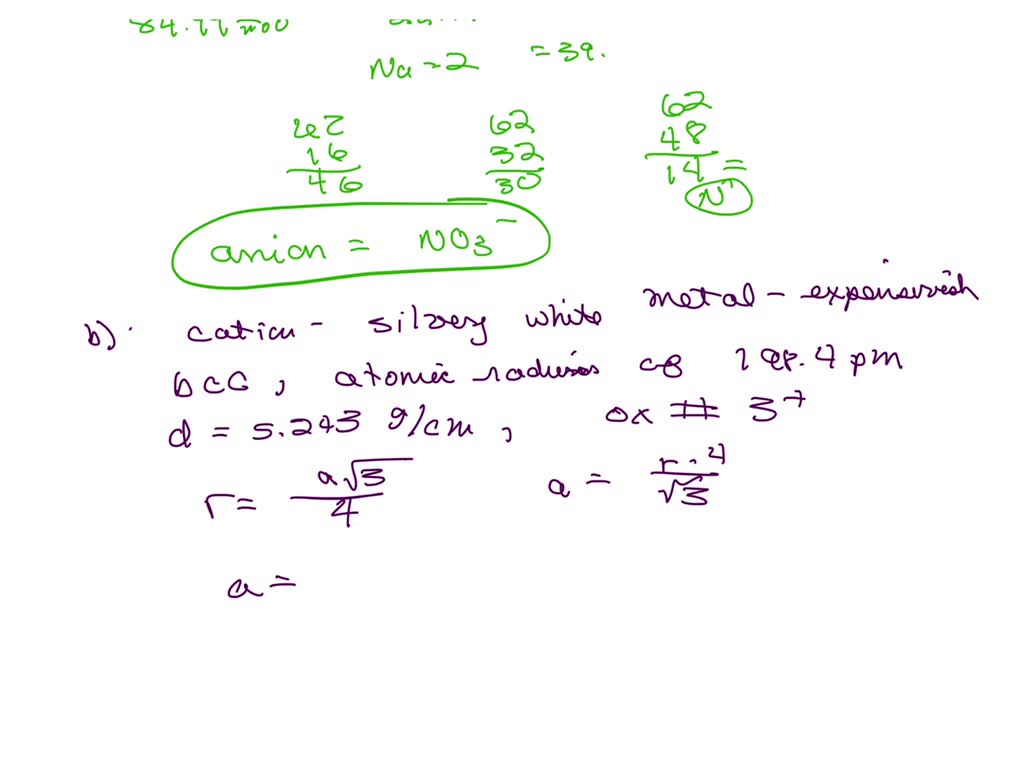 Na = 2 = 39.
62 62
16 32 48
46 30 14 =
N
anion = NO3⁻
b). cation - silvery white metal - expensiveish
bcc, atomic radius of 198.4 pm
d = 5.243 g/cm, ox # 3+
r = a√3/4 a = r·4/√3
a =